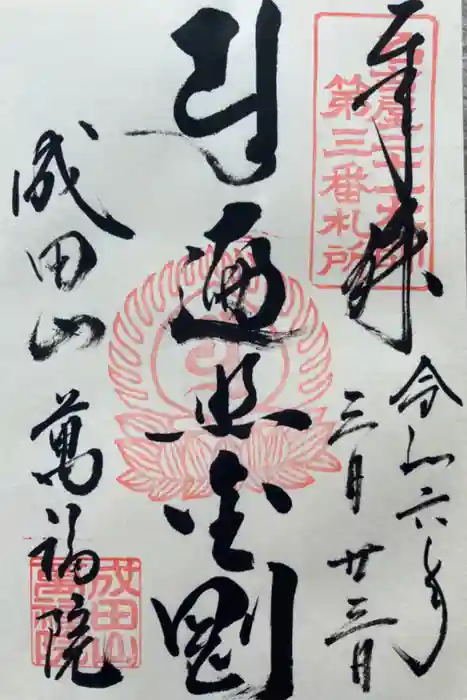 奉拝
令和六年
三月廿三日
第三番札所
遍照金剛
成田山 萬福院
成田山
萬福院